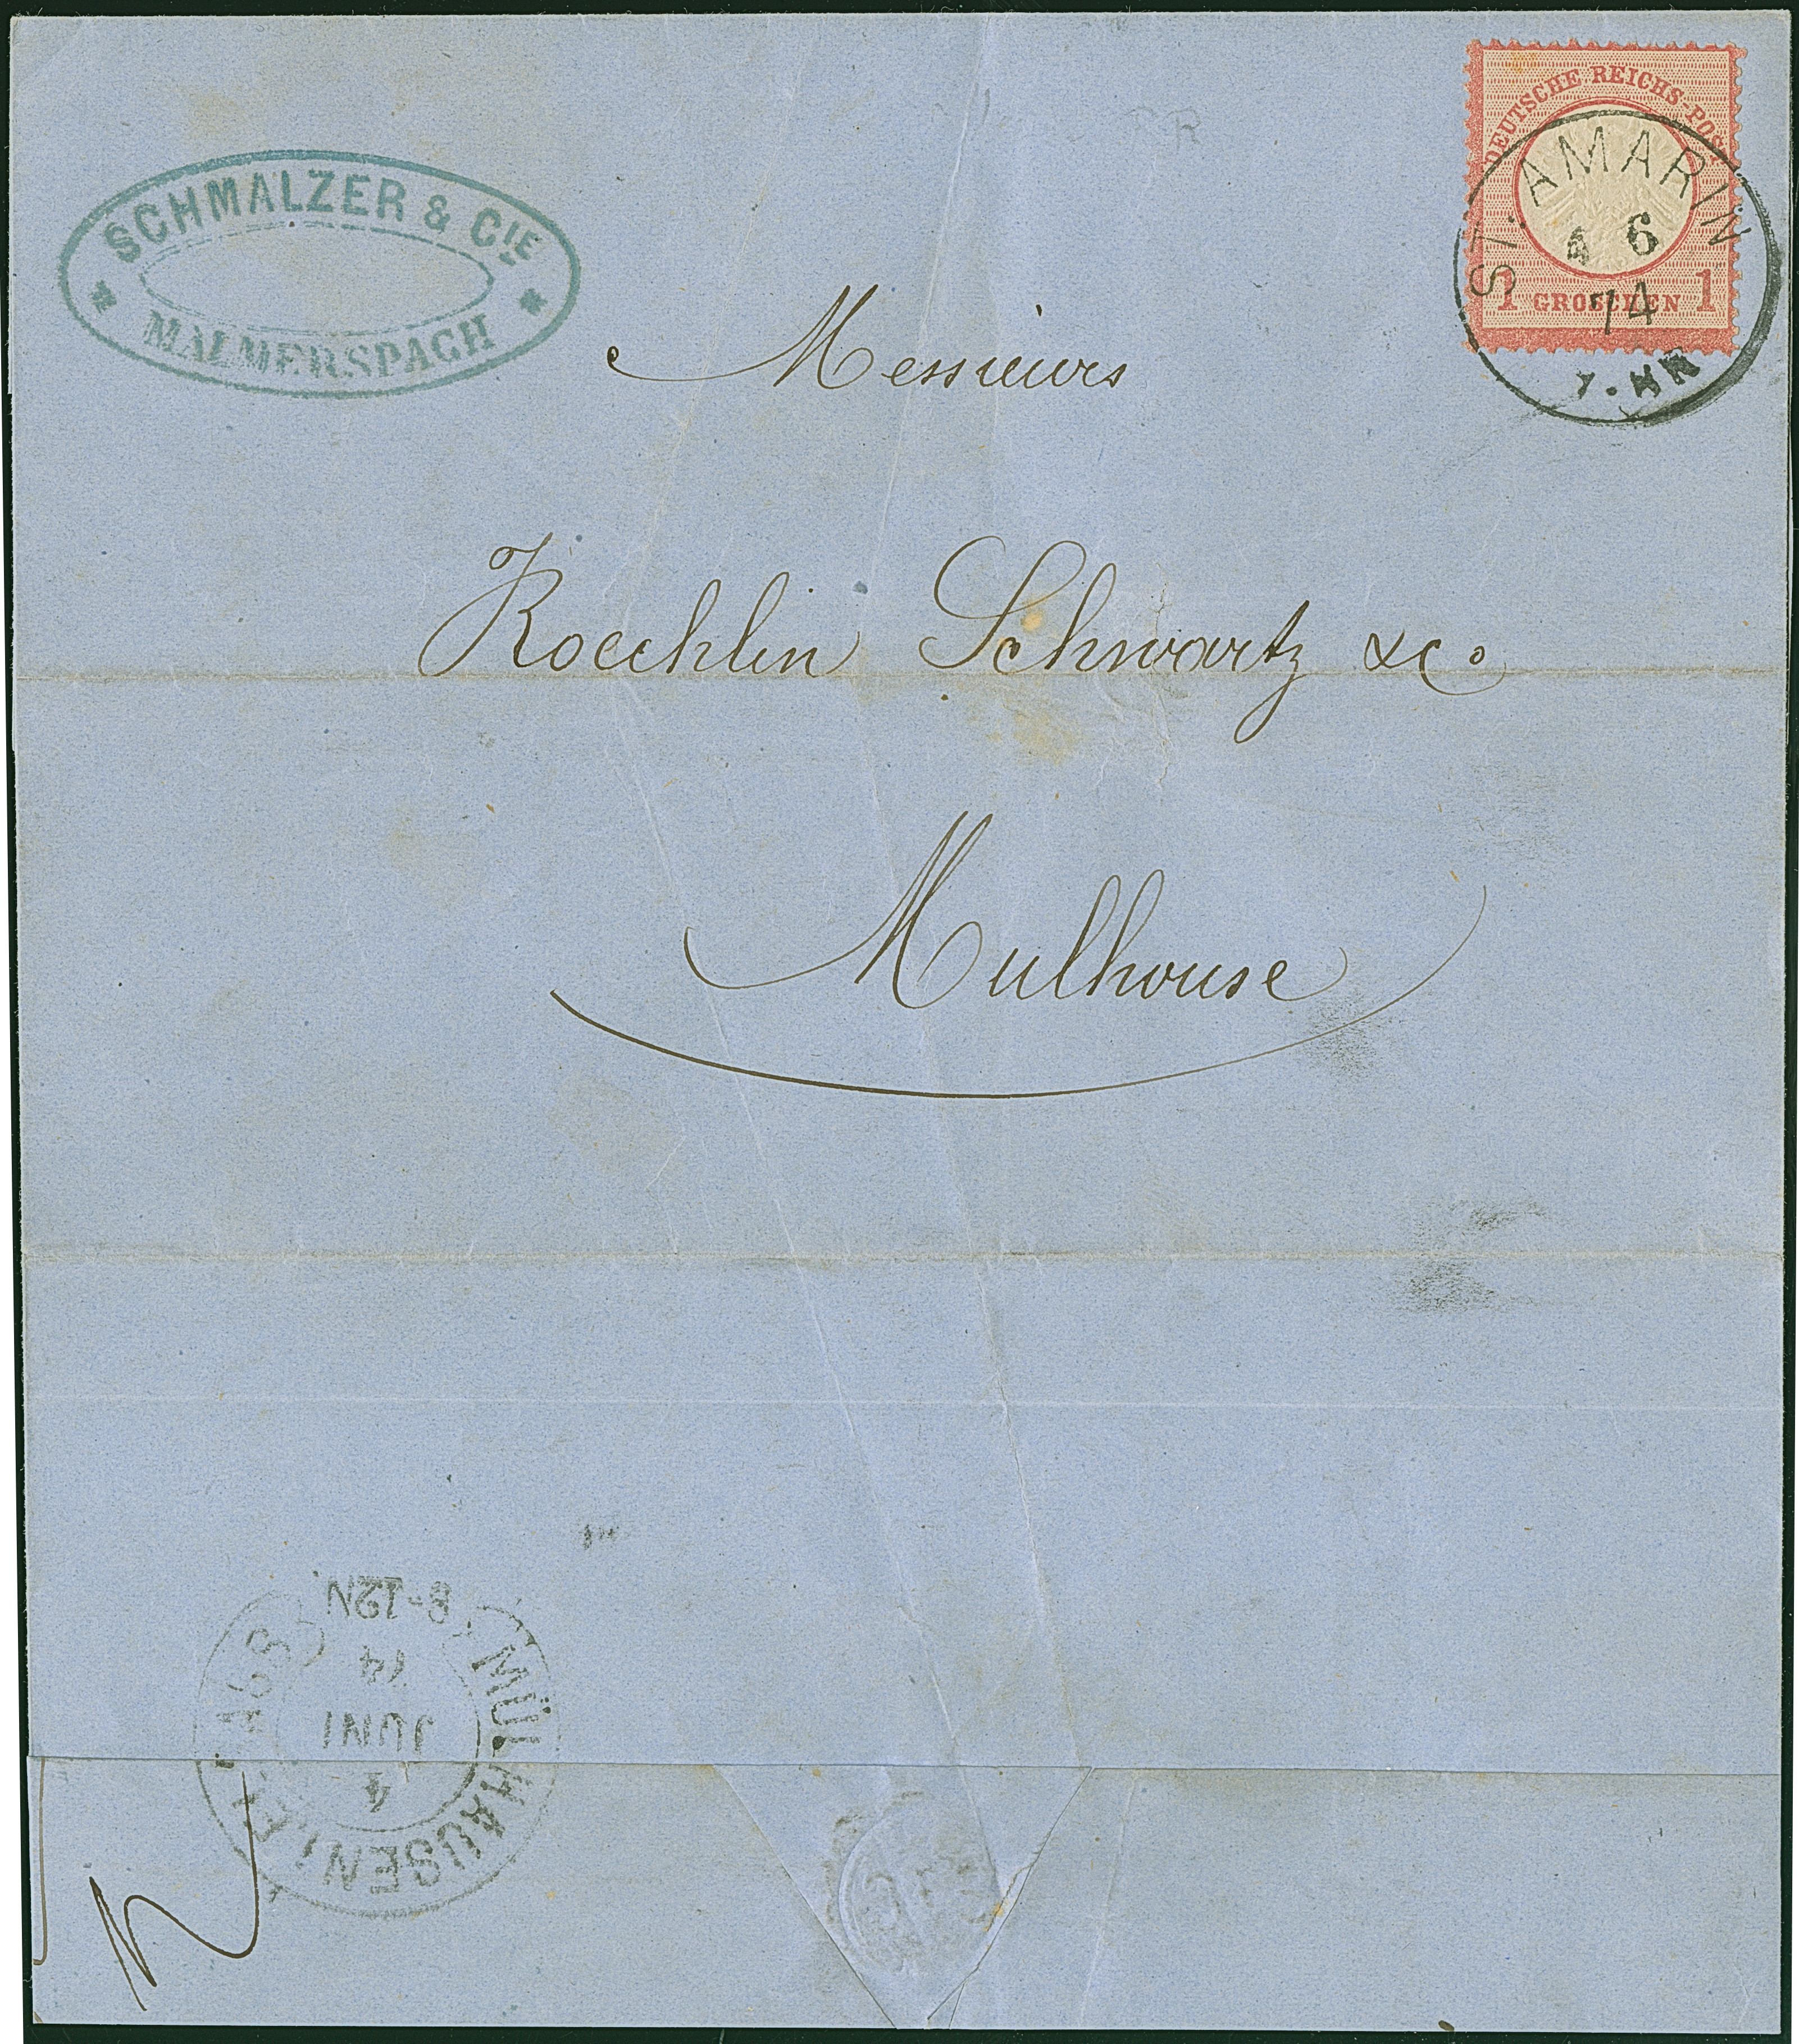 SCHMALZER & CIE
MALMERSPACH
DEUTSCHE REICHS-POST
1 GROSCHEN 1
ST. AMARIN
4 6
74
Messieurs
Koechlin Schwartz &c.
Mulhouse
MÜLHAUSEN
4
JUNI
74
8-12N